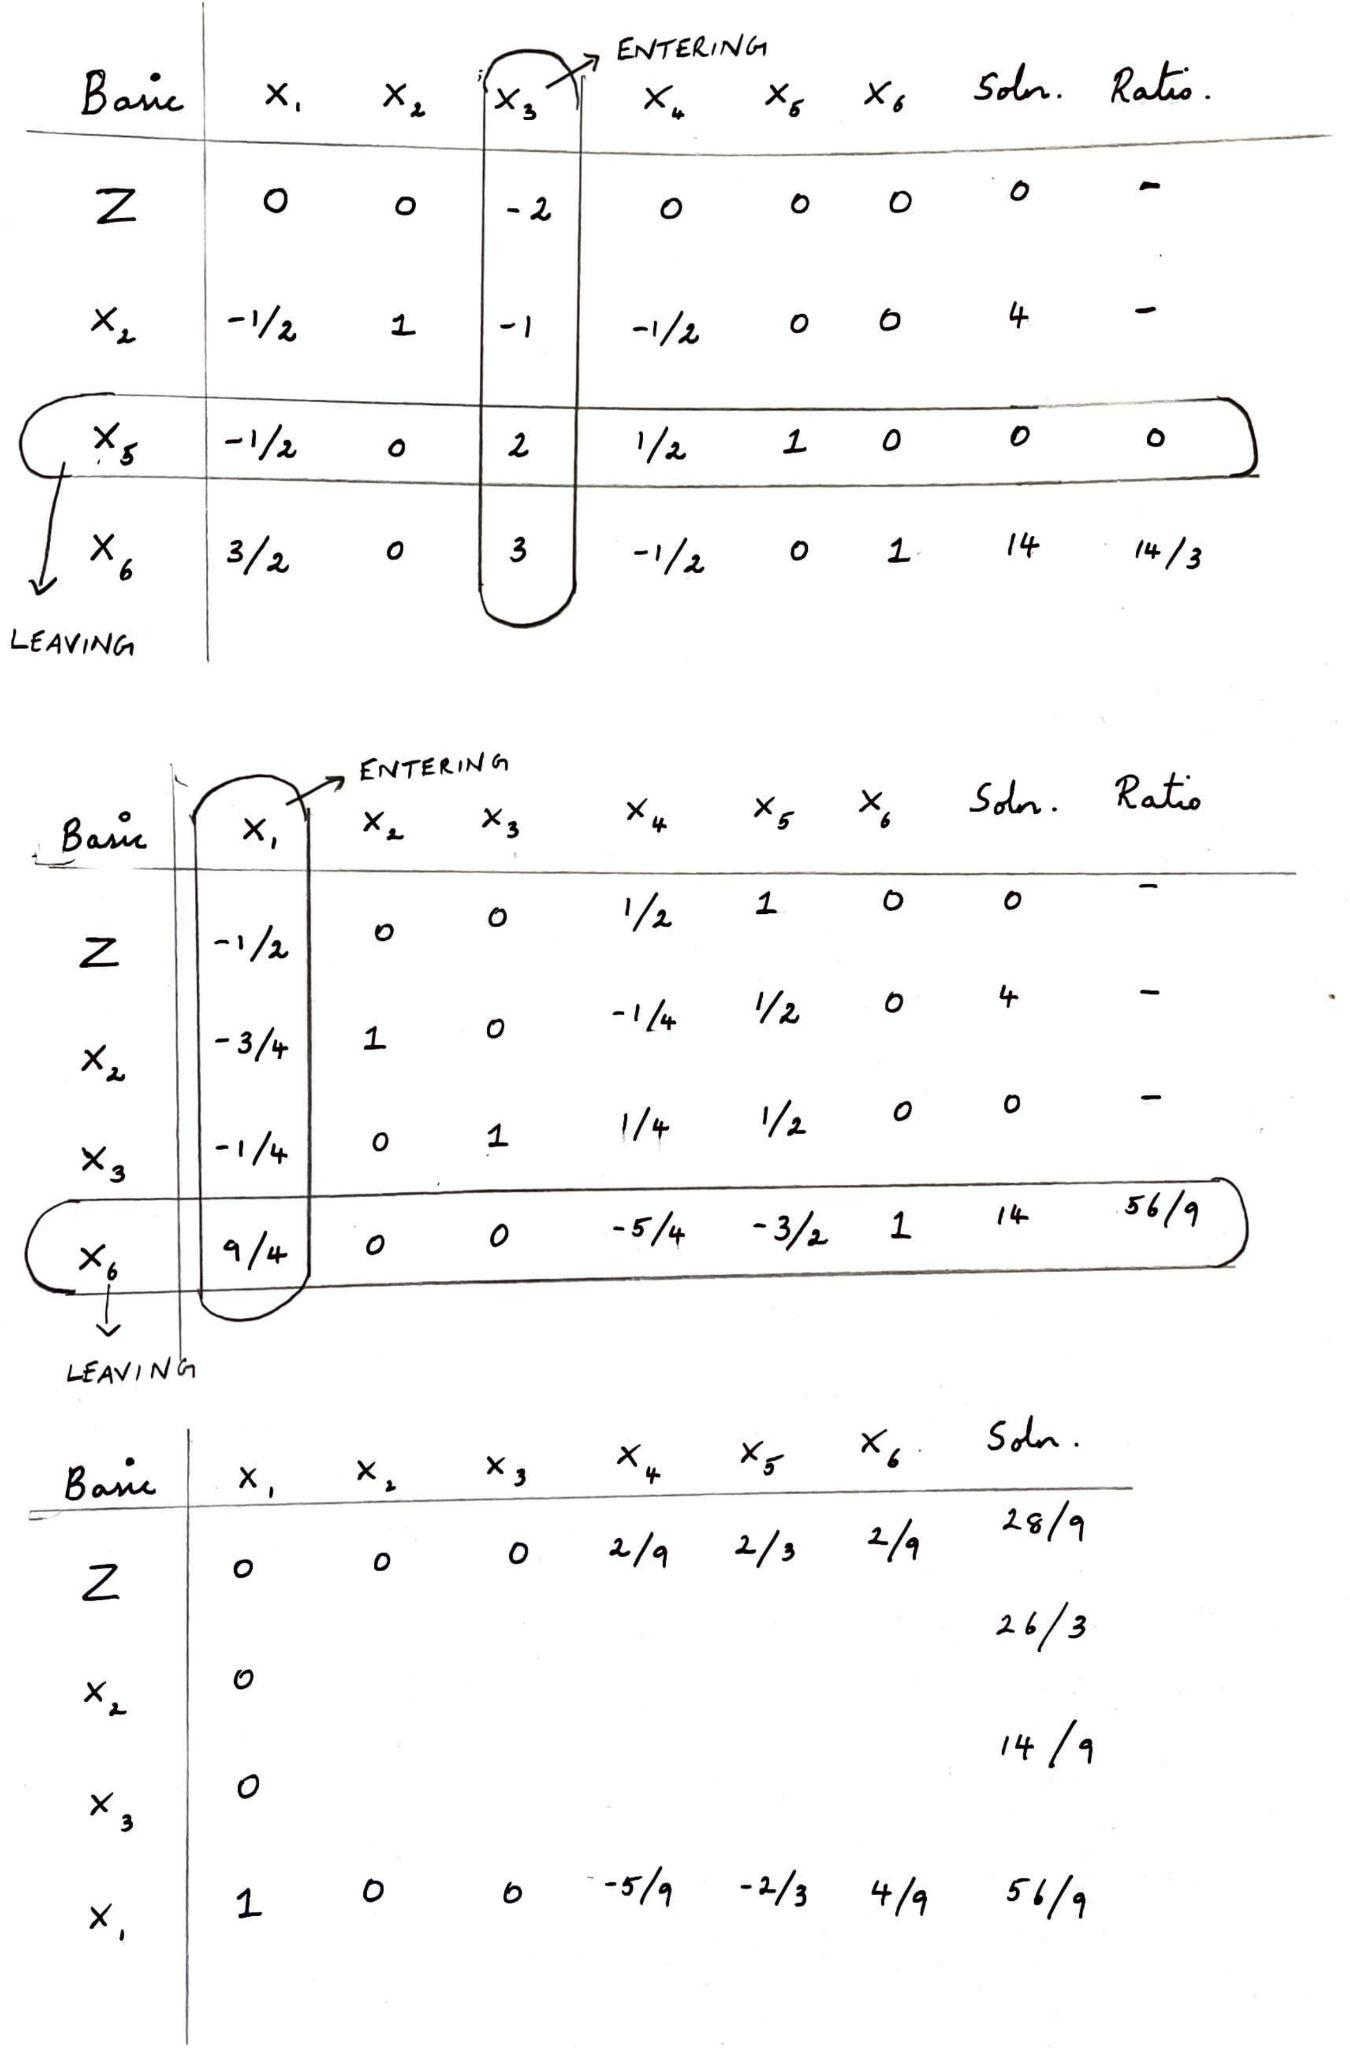 ENTERING
Basic x₁ x₂ x₃ x₄ x₅ x₆ Soln. Ratio.
Z 0 0 -2 0 0 0 0 -
x₂ -1/2 1 -1 -1/2 0 0 4 -
x₅ -1/2 0 2 1/2 1 0 0 0
x₆ 3/2 0 3 -1/2 0 1 14 14/3
LEAVING
ENTERING
Basic x₁ x₂ x₃ x₄ x₅ x₆ Soln. Ratio
Z -1/2 0 0 1/2 1 0 0 -
x₂ -3/4 1 0 -1/4 1/2 0 4 -
x₃ -1/4 0 1 1/4 1/2 0 0 -
x₆ 9/4 0 0 -5/4 -3/2 1 14 56/9
LEAVING
Basic x₁ x₂ x₃ x₄ x₅ x₆ Soln.
Z 0 0 0 2/9 2/3 2/9 28/9
x₂ 0 26/3
x₃ 0 14/9
x₁ 1 0 0 -5/9 -2/3 4/9 56/9